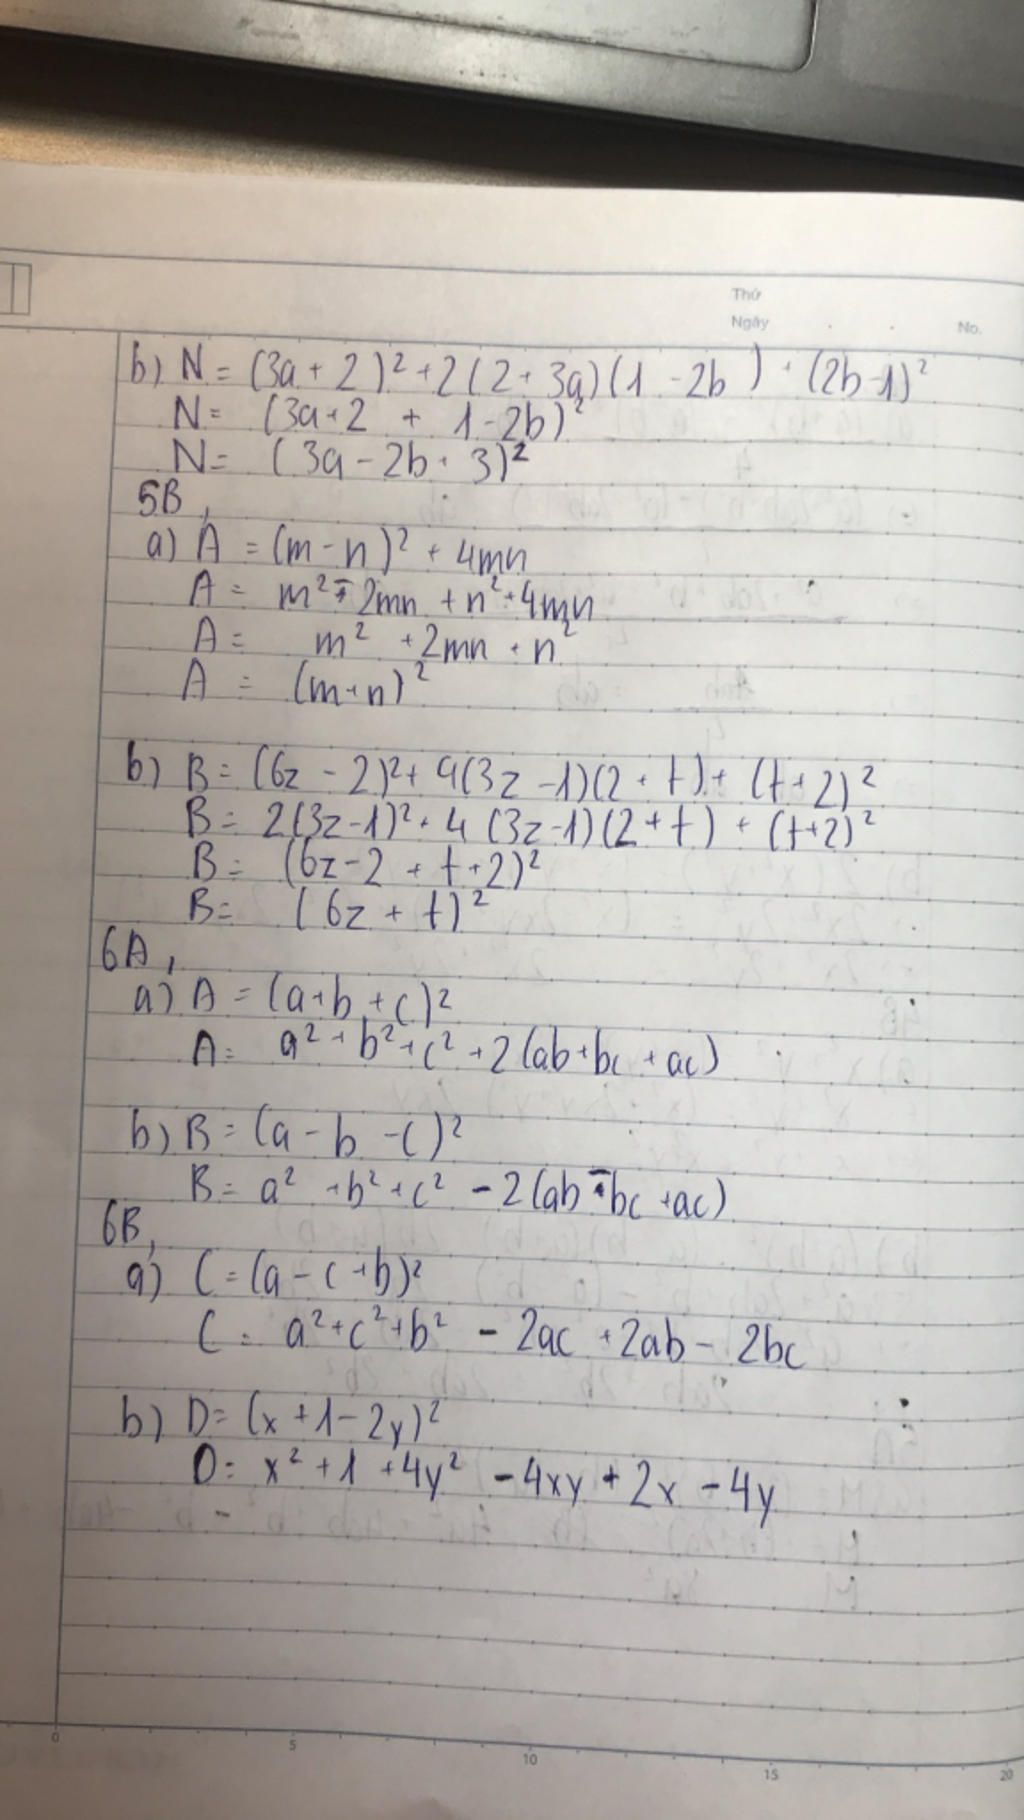 Thứ
Ngày
No.
b) N = (3a + 2)² + 2(2 + 3a)(1 - 2b) + (2b-1)²
N = (3a+2 + 1-2b)²
N = (3a - 2b + 3)²
5B,
a) A = (m - n)² + 4mn
A = m² - 2mn + n² + 4mn
A = m² + 2mn + n²
A = (m+n)²
b) B = (6z - 2)² + 4(3z - 1)(2 + t) + (t+2)²
B = 2(3z-1)² + 4(3z-1)(2+t) + (t+2)²
B = (6z-2 + t+2)²
B = (6z + t)²
6A,
a) A = (a+b+c)²
A = a² + b² + c² + 2(ab+bc+ac)
b) B = (a - b - c)²
B = a² + b² + c² - 2(ab - bc + ac)
6B,
a) C = (a - c + b)²
C = a² + c² + b² - 2ac + 2ab - 2bc
b) D = (x + 1 - 2y)²
D = x² + 1 + 4y² - 4xy + 2x - 4y
0 5 10 15 20